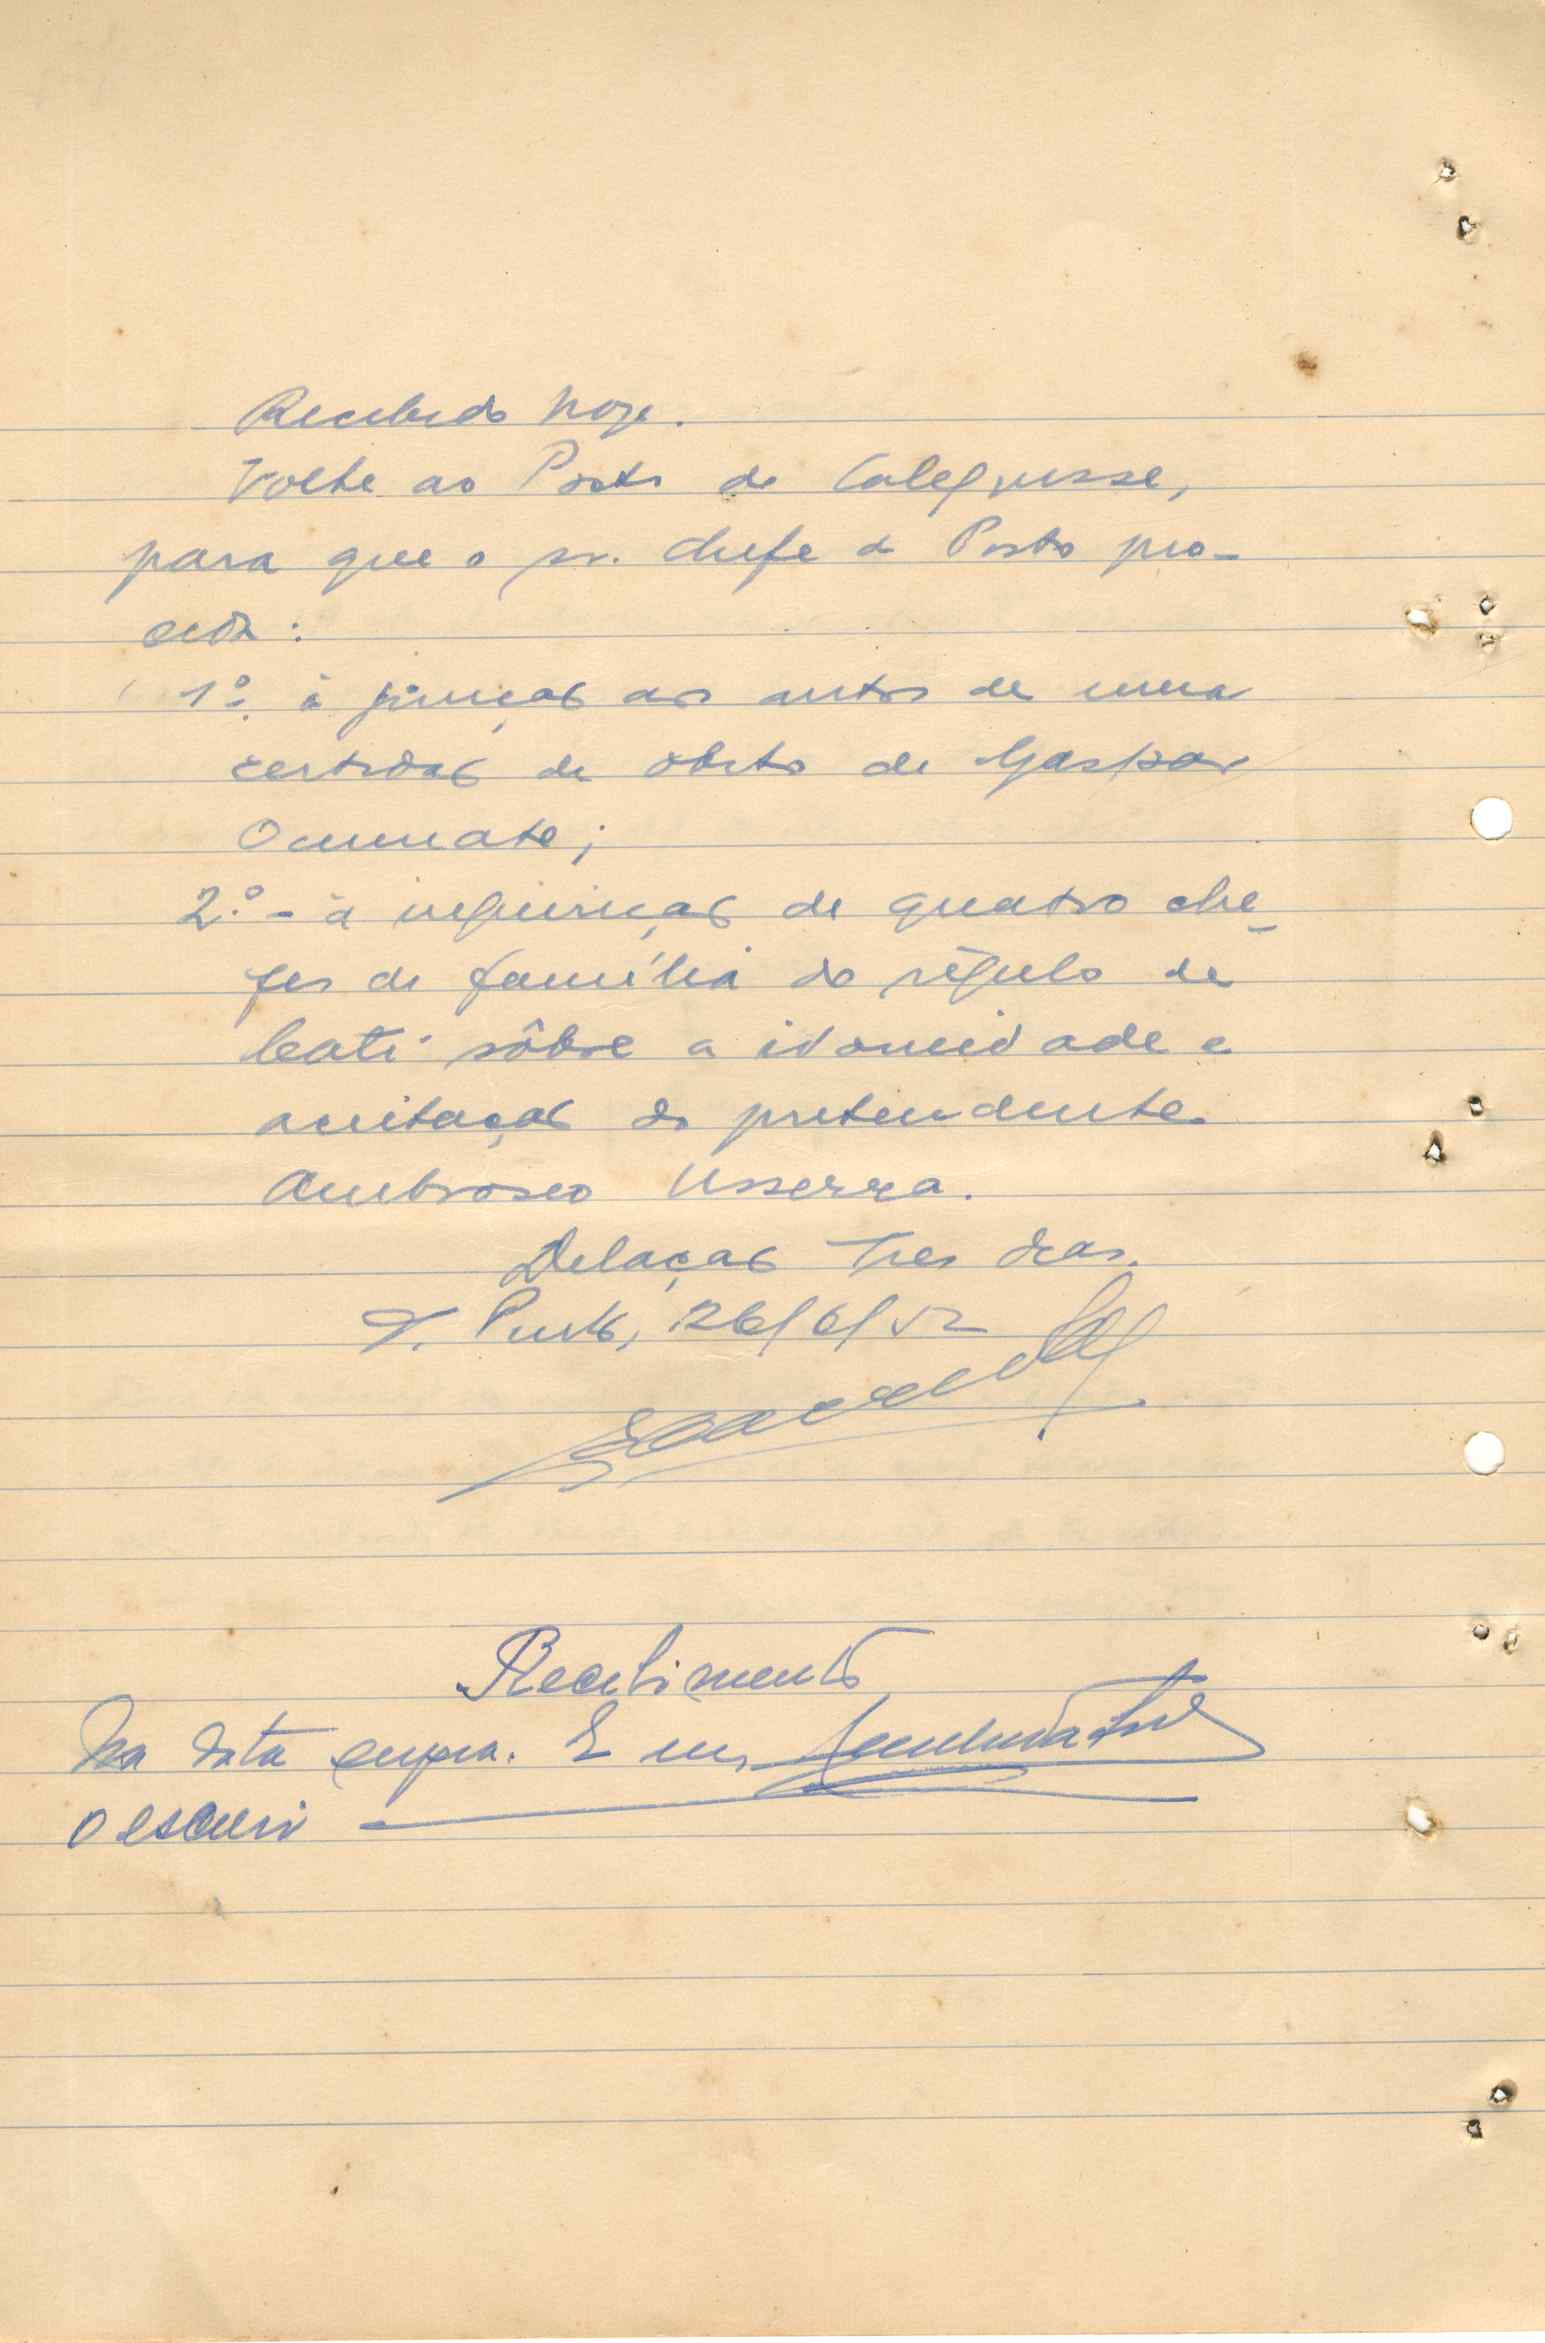 Recebido hoje.
Volte ao Posto de Calequisse,
para que o sr. chefe de Posto pro-
ceda:
1º. à junção aos autos de uma
certidão de óbito de Gaspar
Ocunate;
2.º - à inquirição de quatro che-
fes de família do régulo de
Cati sôbre a idoneidade e
aceitação do pretendente
Ambrosio Usserra.
Delação tres dias.
T. Pinto, 26/6/52
Recebimento
Na data supra. E eu,
o escrevi